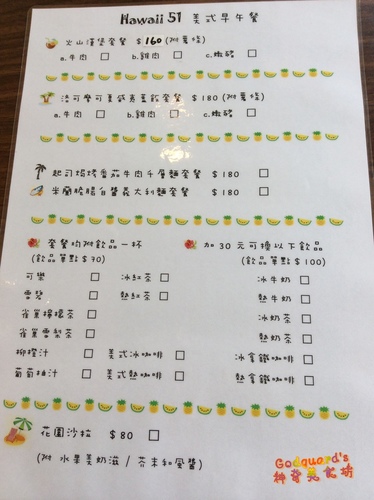 Hawaii 51 美式早午餐
火山漢堡套餐 $160 (附薯條)
a.牛肉 □ b.雞肉 □ c.嫩豬 □
洛可摩可美式燴蓋飯套餐 $180 (附薯條)
a.牛肉 □ b.雞肉 □ c.嫩豬 □
起司焗烤番茄牛肉千層麵套餐 $180 □
米蘭脆腸白醬義大利麵套餐 $180 □
套餐均附飲品一杯
(飲品單點$70)
可樂 □ 冰紅茶 □
雪碧 □ 熱紅茶 □
雀巢檸檬茶 □
雀巢雪梨茶 □
柳橙汁 □ 美式冰咖啡 □
葡萄柚汁 □ 美式熱咖啡 □
加30元可換以下飲品
(飲品單點$100)
冰牛奶 □
熱牛奶 □
冰奶茶 □
熱奶茶 □
冰拿鐵咖啡 □
熱拿鐵咖啡 □
花園沙拉 $80 □
(附 水果美奶滋 / 芥末和風醬)
Godguard's
神奇美食坊